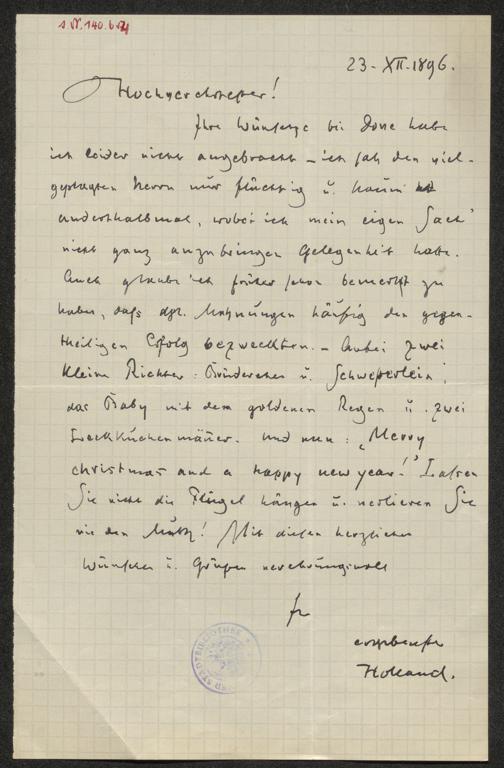 23. XII. 1896.
Hochverehrtester!
Ihre Wünsche bei Dove habe
ich leider nicht angebracht – ich sah den viel-
geplagten Herrn nur flüchtig u. kaum
anderthalbmal, wobei ich mein eigen Sach'
nicht ganz anzubringen Gelegenheit hatte.
Auch glaube ich früher schon bemerkt zu
haben, daß dgl. Mahnungen häufig den gegen-
theiligen Erfolg bezweckten. – Anbei zwei
kleine Richter: Brüderchen u. Schwesterlein;
das Baby mit dem goldenen Regen u. zwei
Leckkuchenmäner. Und nun: „Merry
christmas and a happy new year!" Lassen
Sie nicht die Flügel hängen u. verlieren Sie
nie den Muth! Mit diesen herzlichen
Wünschen u. Grüßen verehrungsvoll
Ihr
ergebenster
Holland.